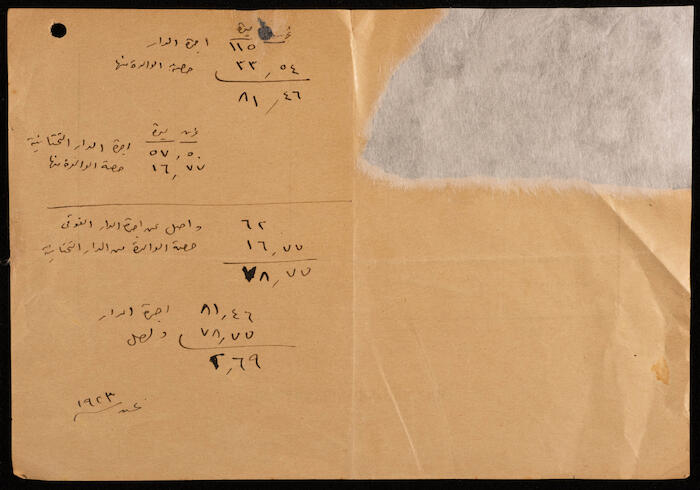 غرش ليرة
اجرة الدار ١١٥
حصة الوالدة منها ٣٣,٥٤
٨١,٤٦
غرش ليرة
اجرة الدار التحتانية ٥٧,٥٠
حصة الوالدة منها ١٦,٧٧
واصل عن اجرة الدار الفوقى ٦٢
حصة الوالدة من الدار التحتانية ١٦,٧٧
٧٨,٧٧
اجرة الدار ٨١,٤٦
واصل ٧٨,٧٧
٢,٦٩
عن ١٩٢٣